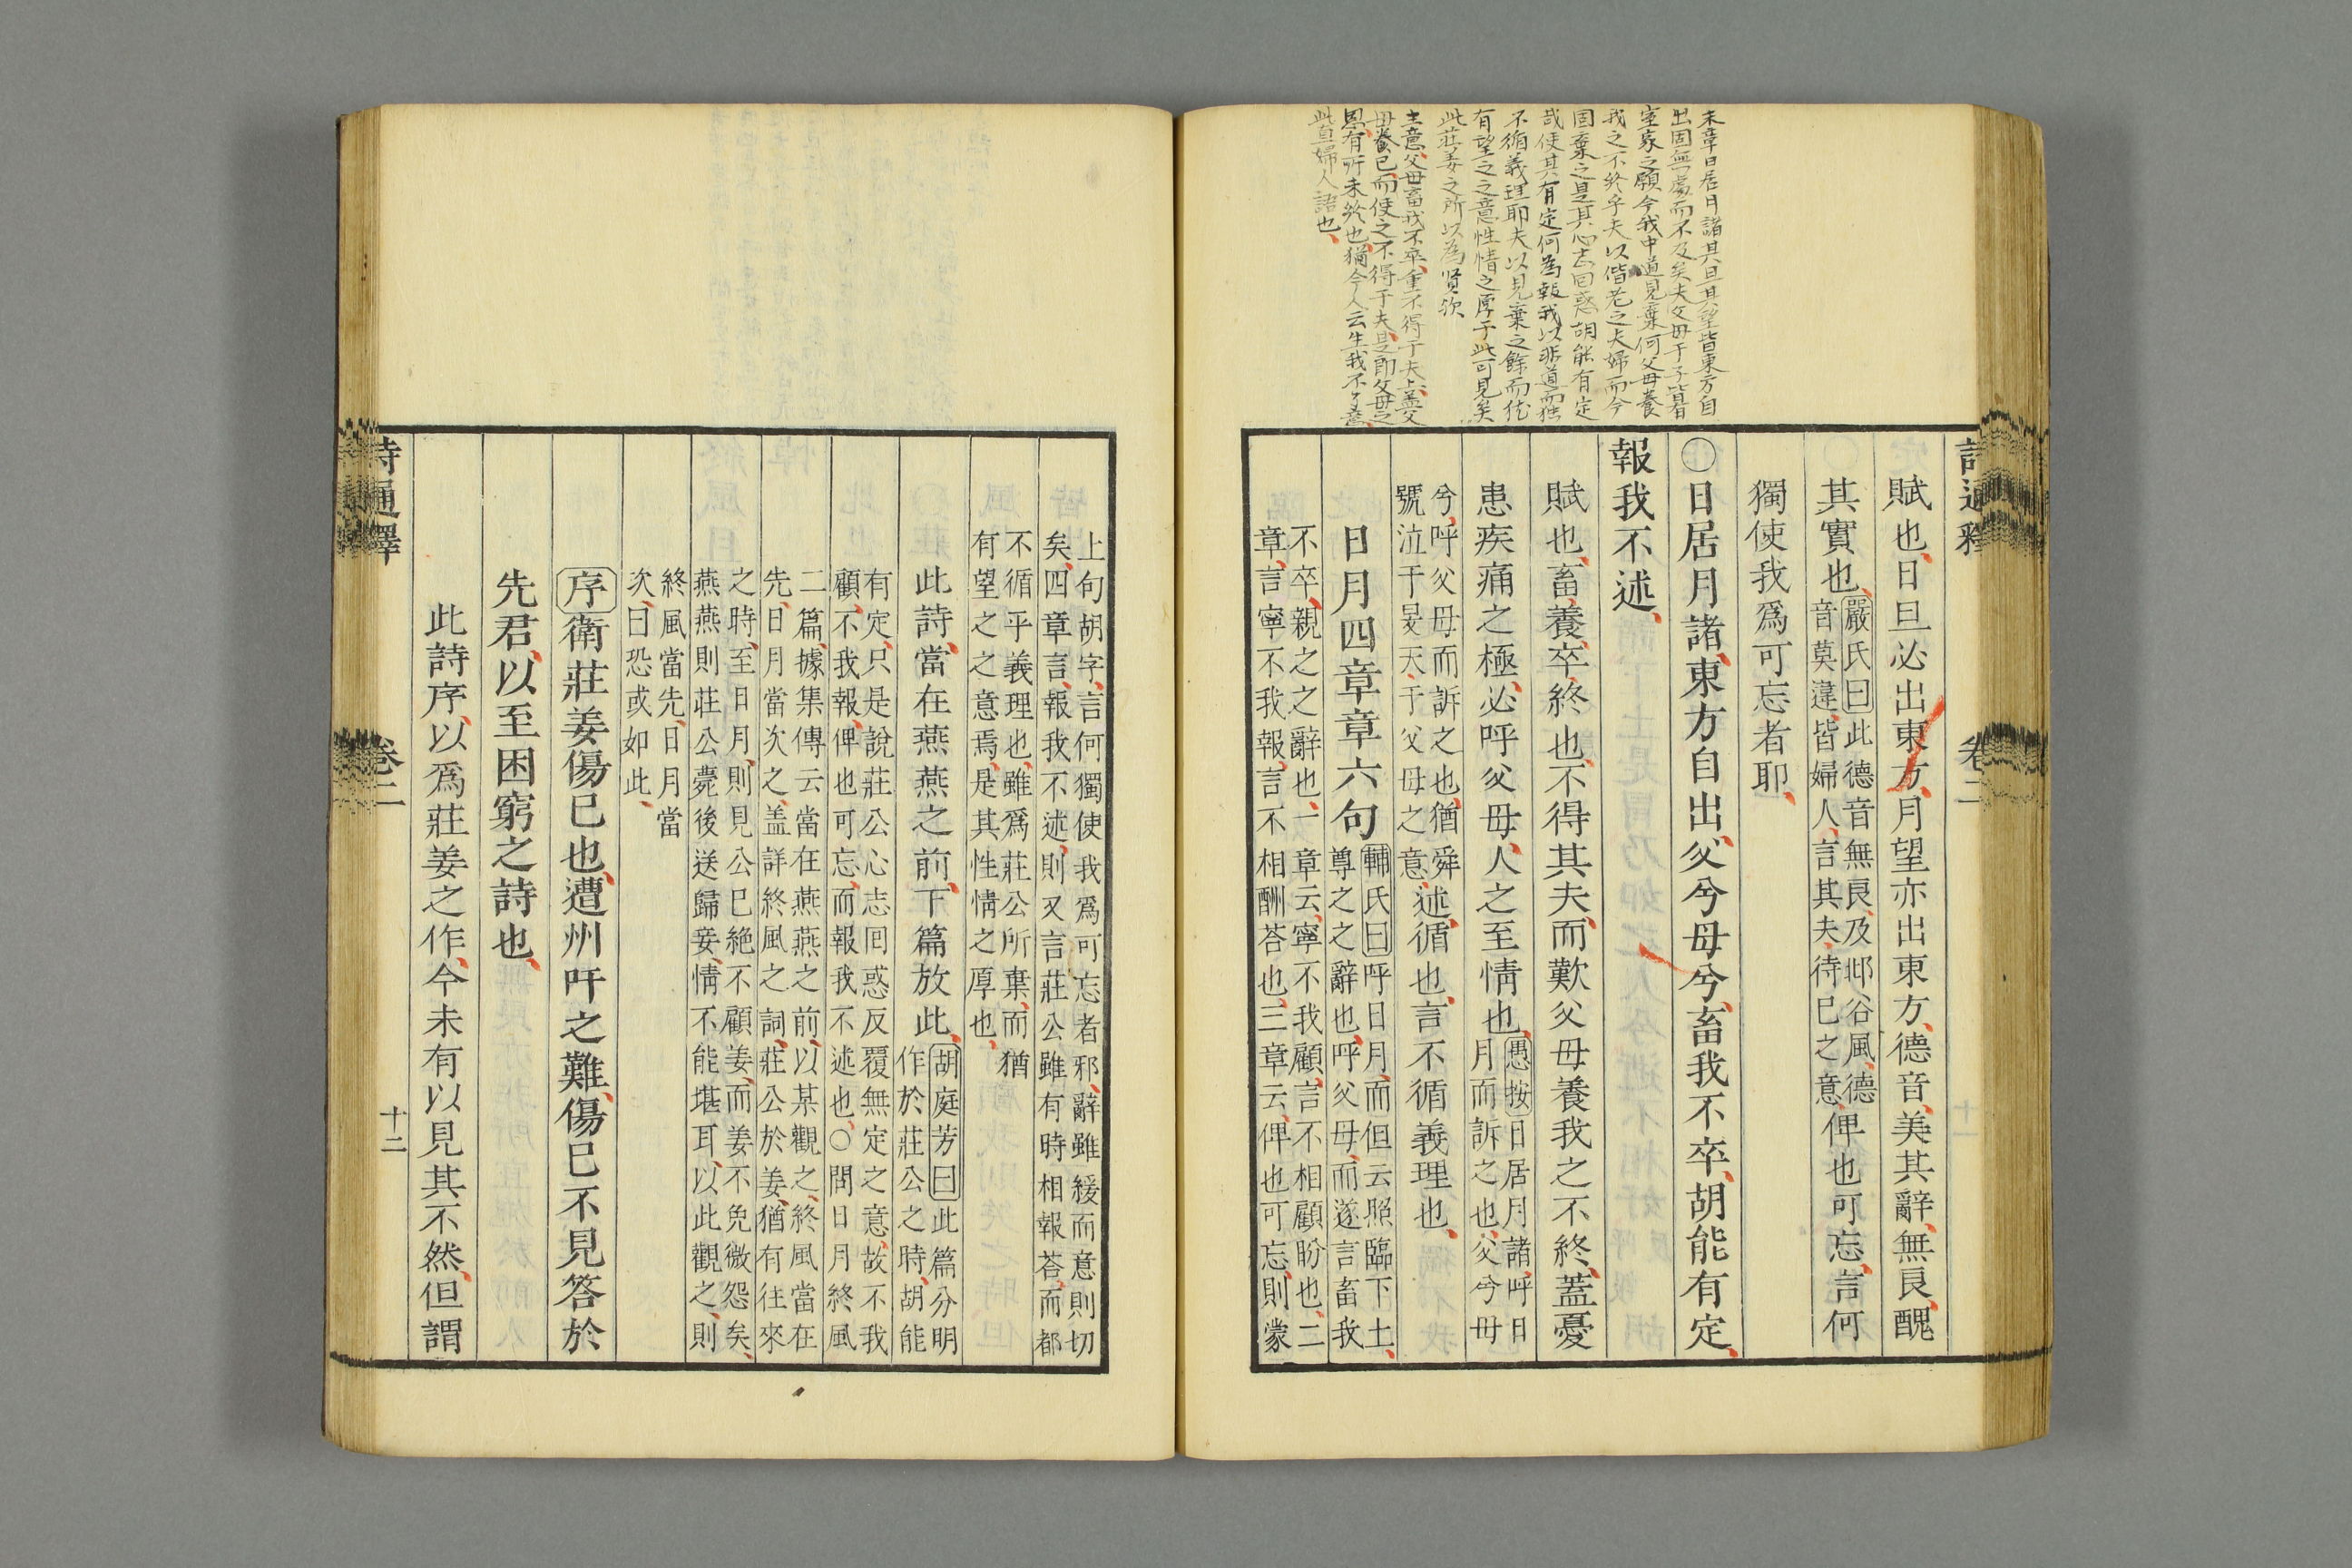 末章曰居月諸其旦其望皆東方自
出固無處而不及矣夫父母于子皆有
室家之願今我中道見棄何父母養
我之不終乎夫以偕老之夫婦而今
固棄之是其心志回惑胡能有定
哉使其有定何為報我以非道而獨
不循義理耶夫以見棄之餘而猶
有望之之意性情之厚于此可見矣
此莊姜之所以為賢欤
主意父母畜我不卒重不得于夫上蓋父
母養己而使之不得于夫是即父母之
恩有所未終也猶今人云生我不了意
此真婦人語也
卷二
賦也日旦必出東方月望亦出東方德音美其辭無良醜
其實也嚴氏曰此德音無良及邶谷風德
音莫違皆婦人言其夫待己之意俾也可忘言何
獨使我爲可忘者耶
○日居月諸東方自出父兮母兮畜我不卒胡能有定
報我不述
賦也畜養卒終也不得其夫而歎父母養我之不終蓋憂
患疾痛之極必呼父母人之至情也愚按日居月諸呼日
月而訴之也父兮母
兮呼父母而訴之也猶舜
號泣于旻天于父母之意述循也言不循義理也
日月四章章六句輔氏曰呼日月而但云照臨下土
尊之之辭也呼父母而遂言畜我
不卒親之之辭也一章云寧不我顧言不相顧盼也二
章言寧不我報言不相酬荅也三章云俾也可忘則蒙
上句胡字言何獨使我爲可忘者邪辭雖緩而意則切
矣四章言報我不述則又言莊公雖有時相報荅而都
不循乎義理也雖爲莊公所棄而猶
有望之之意焉是其性情之厚也
此詩當在燕燕之前下篇放此胡庭芳曰此篇分明
作於莊公之時胡能
有定只是說莊公心志回惑反覆無定之意故不我
顧不我報俾也可忘而報我不述也○問日月終風
二篇據集傳云當在燕燕之前以某觀之終風當在
先日月當次之盖詳終風之詞莊公於姜猶有往來
之時至日月則見公已絶不顧姜而姜不免微怨矣
燕燕則莊公薨後送歸妾情不能堪耳以此觀之則
終風當先日月當
次曰恐或如此
序衛莊姜傷已也遭州吁之難傷已不見答於
先君以至困窮之詩也
此詩序以爲莊姜之作今未有以見其不然但謂
詩通釋
卷二
十二